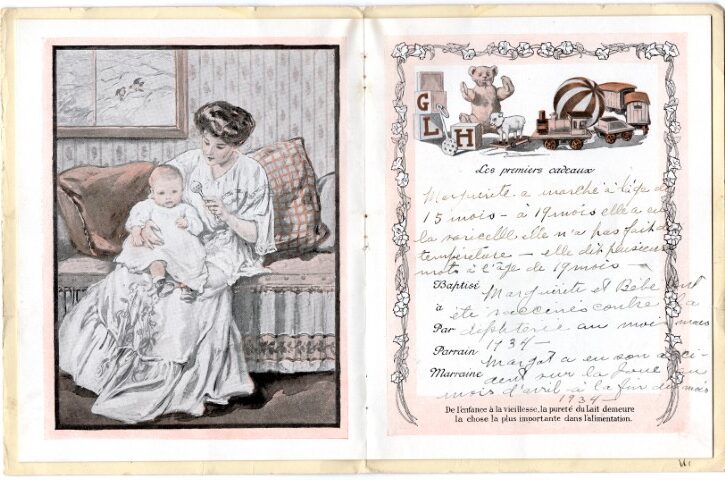 G
L H
Les premiers cadeaux
Marguerite a marché à l'âge de
15 mois - à 19 mois elle a eu
la varicelle elle n'a pas fait de
température - elle dit plusieurs
mots à l'âge de 19 mois -
Baptisé Marguerite et Bébé ont
à été vaccinés contre la
Par au mois
1934 -
Parrain Margot a eu son acci-
Marraine dent sur la joue au
mois d'avril - à la fin du mois
1934 -
De l'enfance à la vieillesse, la pureté du lait demeure
la chose la plus importante dans l'alimentation.